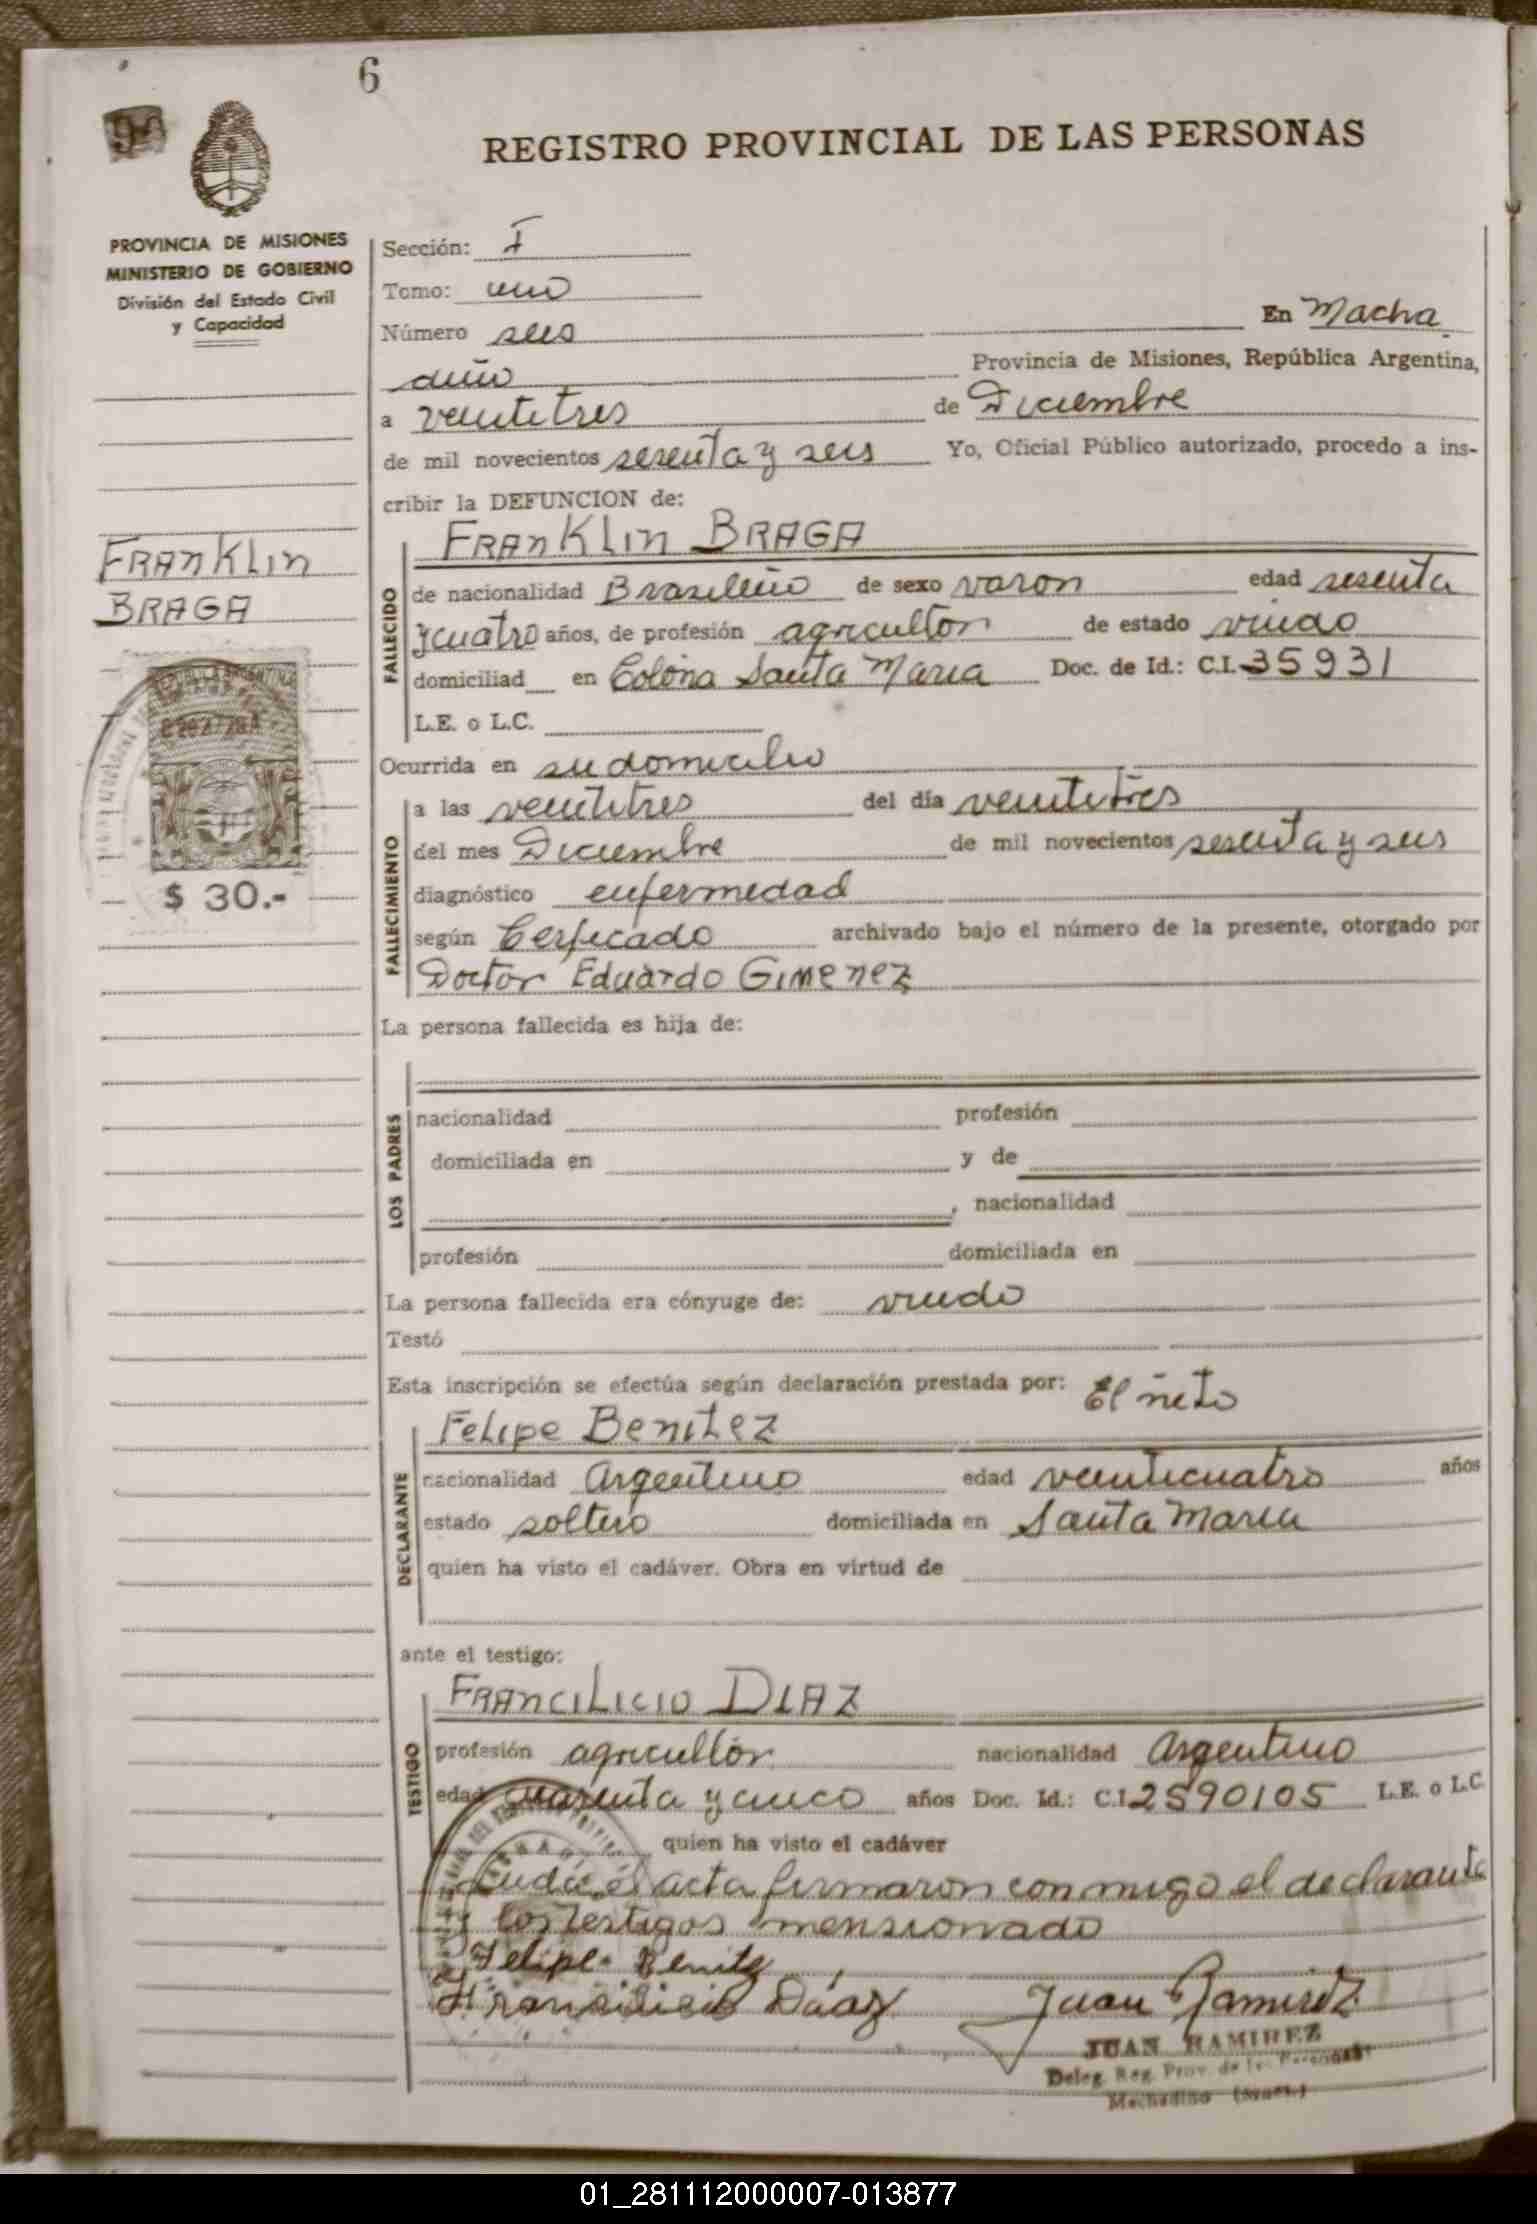 6
REGISTRO PROVINCIAL DE LAS PERSONAS
PROVINCIA DE MISIONES
MINISTERIO DE GOBIERNO
División del Estado Civil
y Capacidad
Sección: I
Tomo: uno
Número seis
En Macha
diño Provincia de Misiones, República Argentina,
a veintitres de Diciembre
de mil novecientos sesenta y seis Yo, Oficial Público autorizado, procedo a ins-
cribir la DEFUNCION de:
FRANKLIN
BRAGA
REPUBLICA ARGENTINA
$ 30.-
FALLECIDO
FRANKLIN BRAGA
de nacionalidad Brasileño de sexo varon edad sesenta
y cuatro años, de profesión agricultor de estado viudo
domiciliad en Colonia Santa Maria Doc. de Id.: C.I. 35931
L.E. o L.C.
Ocurrida en su domicilio
FALLECIMIENTO
a las veintitres del día veintitres
del mes Diciembre de mil novecientos sesenta y seis
diagnóstico enfermedad
según Cerficado archivado bajo el número de la presente, otorgado por
Doctor Eduardo Gimenez
La persona fallecida es hija de:
LOS PADRES
nacionalidad profesión
domiciliada en y de
, nacionalidad
profesión domiciliada en
La persona fallecida era cónyuge de: viudo
Testó
Esta inscripción se efectúa según declaración prestada por: El nieto
DECLARANTE
Felipe Benitez
nacionalidad Argentino edad veinticuatro años
estado soltero domiciliada en Santa Maria
quien ha visto el cadáver. Obra en virtud de
ante el testigo:
TESTIGO
FRANCILICIO DIAZ
profesión agricultor nacionalidad Argentino
edad cuarenta y cinco años Doc. Id.: C.I. 2590105 L.E. o L.C.
quien ha visto el cadáver
acta firmaron conmigo el declarante
y los testigos mensionado
Felipe Benitez
Fransilicio Díaz Juan Ramirez
JUAN RAMIREZ
Deleg. Reg. Prov. de las Personas
01_281112000007-013877